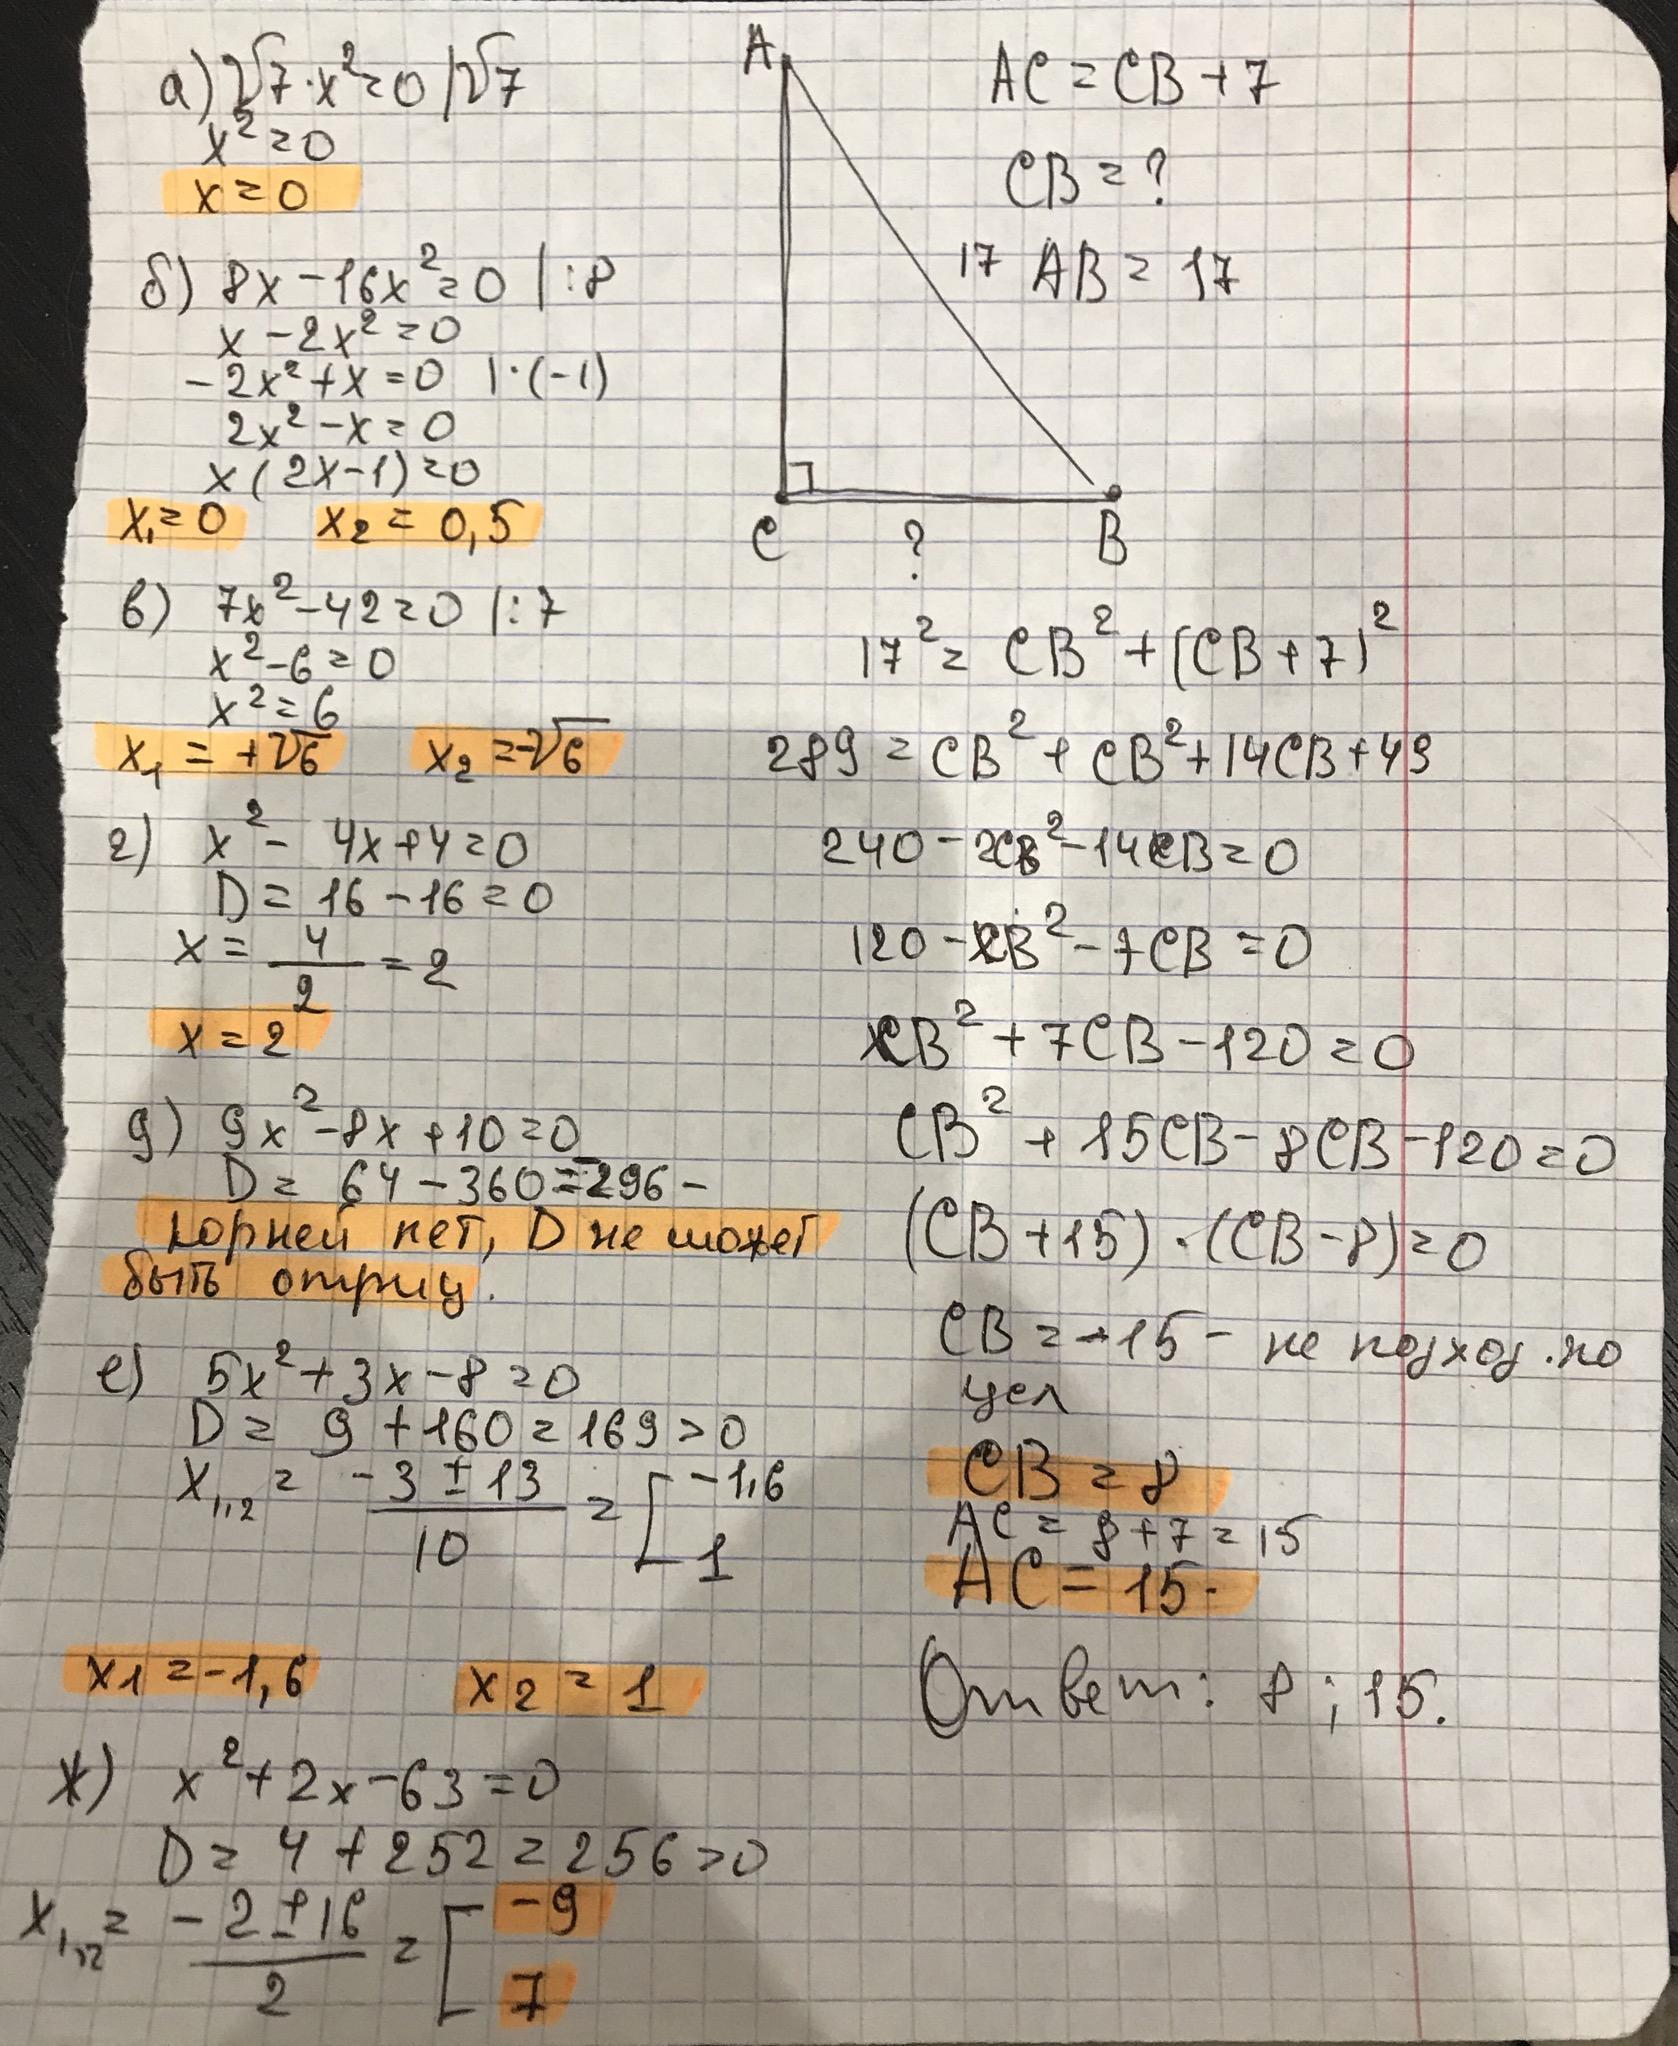 а) √7·x²=0 |√7
x²=0
x=0
б) 8x-16x²=0 |:8
x-2x²=0
-2x²+x=0 |·(-1)
2x²-x=0
x(2x-1)=0
x₁=0 x₂=0,5
в) 7x²-42=0 |:7
x²-6=0
x²=6
x₁=+√6 x₂=-√6
г) x²-4x+4=0
D=16-16=0
x=4/2=2
x=2
д) 9x²-8x+10=0
D=64-360=-296-
корней нет, D не может
быть отриц.
е) 5x²+3x-8=0
D=9+160=169>0
x₁,₂=(-3±13)/10=[-1,6
1
x1=-1,6 x2=1
ж) x²+2x-63=0
D=4+252=256>0
x₁,₂=(-2±16)/2=[-9
7
A
AC=CB+7
CB=?
17 AB=17
C ? B
17²=CB²+(CB+7)²
289=CB²+CB²+14CB+49
240-2CB²-14CB=0
120-CB²-7CB=0
CB²+7CB-120=0
CB²+15CB-8CB-120=0
(CB+15)·(CB-8)=0
CB=-15- не подход. по
усл
CB=8
AC=8+7=15
AC=15.
Ответ: 8; 15.